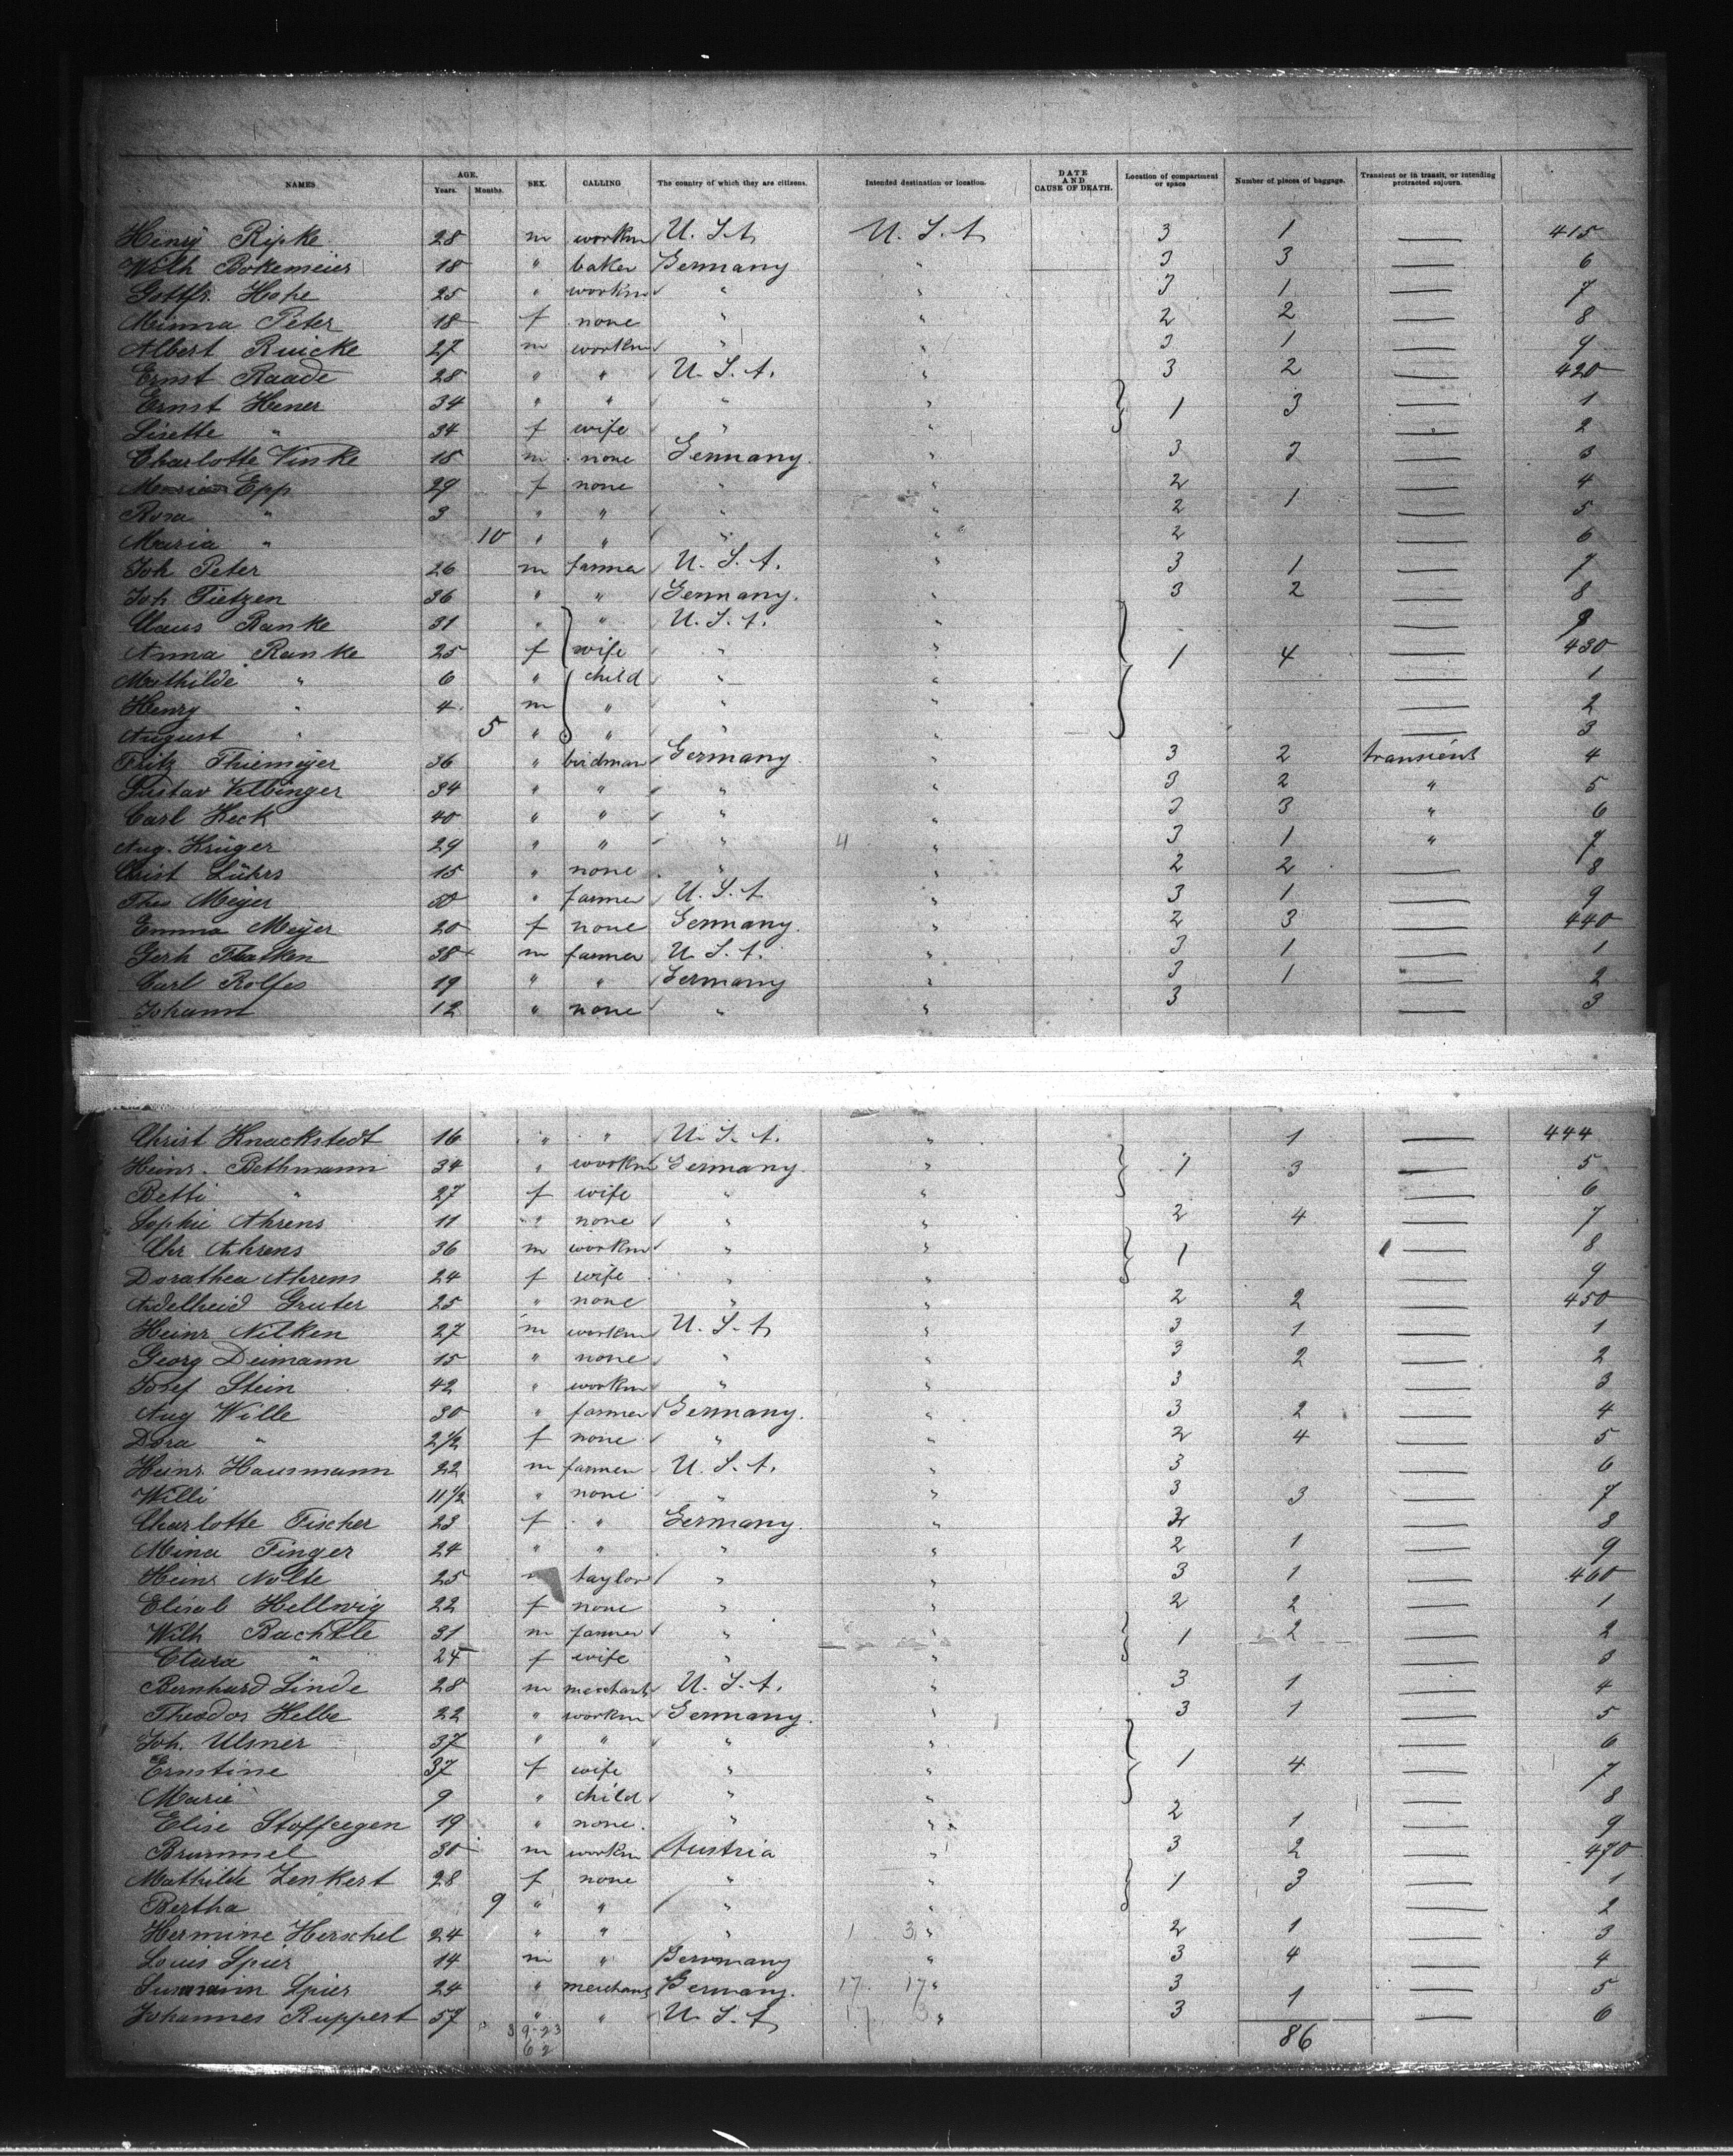 NAMES AGE. Years. Months. SEX. CALLING The country of which they are citizens. Intended destination or location. DATE AND CAUSE OF DEATH. Location of compartment or space Number of pieces of baggage. Transient or in transit, or intending protracted sojourn.
Henry Ripke 28 m workm U. S. A U. S. A 3 1 — 415
Wilh Bokemeier 18 " baker Germany " 3 3 — 6
Gottfr. Hohe 25 " workm " " 3 1 — 7
Minna Peter 18 f none " " 2 2 — 8
Albert Ruicke 27 m workm " " 3 1 — 9
Ernst Raade 28 " " U. S. A. " 3 2 — 420
Ernst Hener 34 " " " " 1 3 — 1
Lisette " 34 f wife " " — 2
Charlotte Vinke 18 m none Germany " 3 3 — 3
Maria Epp 29 f none " " 2 — 4
Rosa " 3 " " " " 2 1 — 5
Maria " 10 " " " " 2 — 6
Joh Peter 26 m farmer U. S. A. " 3 1 — 7
Joh. Tietzen 36 " " Germany. " 3 2 — 8
Claus Ranke 31 " " U. S. A. " — 9
Anna Ranke 25 f wife " " 1 4 — 430
Mathilde " 6 " child " " — 1
Henry " 4 m " " " — 2
August " 5 " " " " — 3
Fritz Thiemeyer 36 " birdman Germany " 3 2 transient 4
Gustav Velbinger 34 " " " " 3 2 " 5
Carl Keck 40 " " " " 3 3 " 6
Aug. Krüger 29 " " " 4 " 3 1 " 7
Christ Lührs 15 " none " " 2 2 — 8
Theo Meyer 50 " farmer U. S. A " 3 1 — 9
Emma Meyer 20 f none Germany. " 2 3 — 440
Gerh Flatken 38 m farmer U. S. A. " 3 1 — 1
Carl Rolfes 19 " " Germany " 3 1 — 2
Johann 12 " none " " 3 — 3
Christ Knackstedt 16 " " U. S. A. " 1 — 444
Heinr. Bethmann 34 " workm Germany " 1 3 — 5
Betti " 27 f wife " " — 6
Sophie Ahrens 11 " none " " 2 4 — 7
Chr Ahrens 36 m workm " " 1 8
Dorathea Ahrens 24 f wife " " — 9
Adelheid Gruter 25 " none " " 2 2 — 450
Heinr Nilken 27 m workm U. S. A " 3 1 — 1
Georg Deimann 15 " none " " 3 2 — 2
Josef Stein 42 " workm " " 3 — 3
Aug Wille 30 " farmer Germany. " 3 2 — 4
Dora " 2 1/2 f none " " 2 4 — 5
Heinr. Hausmann 22 m farmer U. S. A. " 3 — 6
Willi 11 1/2 " none " " 3 3 — 7
Charlotte Fischer 23 f " Germany. " 2 — 8
Mina Finger 24 " " " " 2 1 — 9
Heinr Nolte 25 m taylor " " 3 1 — 460
Elisab Hellwig 22 f none " " 2 2 — 1
Wilh Bachtle 31 m farmer " " 1 2 — 2
Clara " 24 f wife " " — 3
Bernhard Linde 28 m merchant U. S. A. " 3 1 — 4
Theodor Helbe 22 " workm Germany. " 3 1 — 5
Joh. Ulsner 37 " " " " — 6
Ernstine 37 f wife " " 1 4 — 7
Marie 9 " child " " — 8
Elise Stoffregen 19 " none. " " 2 1 — 9
Brummel 30 m workm Austria " 3 2 — 470
Mathilde Zenkert 28 f none " " 1 3 — 1
Bertha 9 " " " " — 2
Hermine Herschel 24 " " " 1 3 " 2 1 — 3
Louis Spier 14 m " Germany " 3 4 — 4
Spier 24 " merchant Germany. 17. 17 " 3 1 — 5
Johannes Ruppert 57 " " U. S. A 17. 3 " 3 — 6
3 9-23 86
62